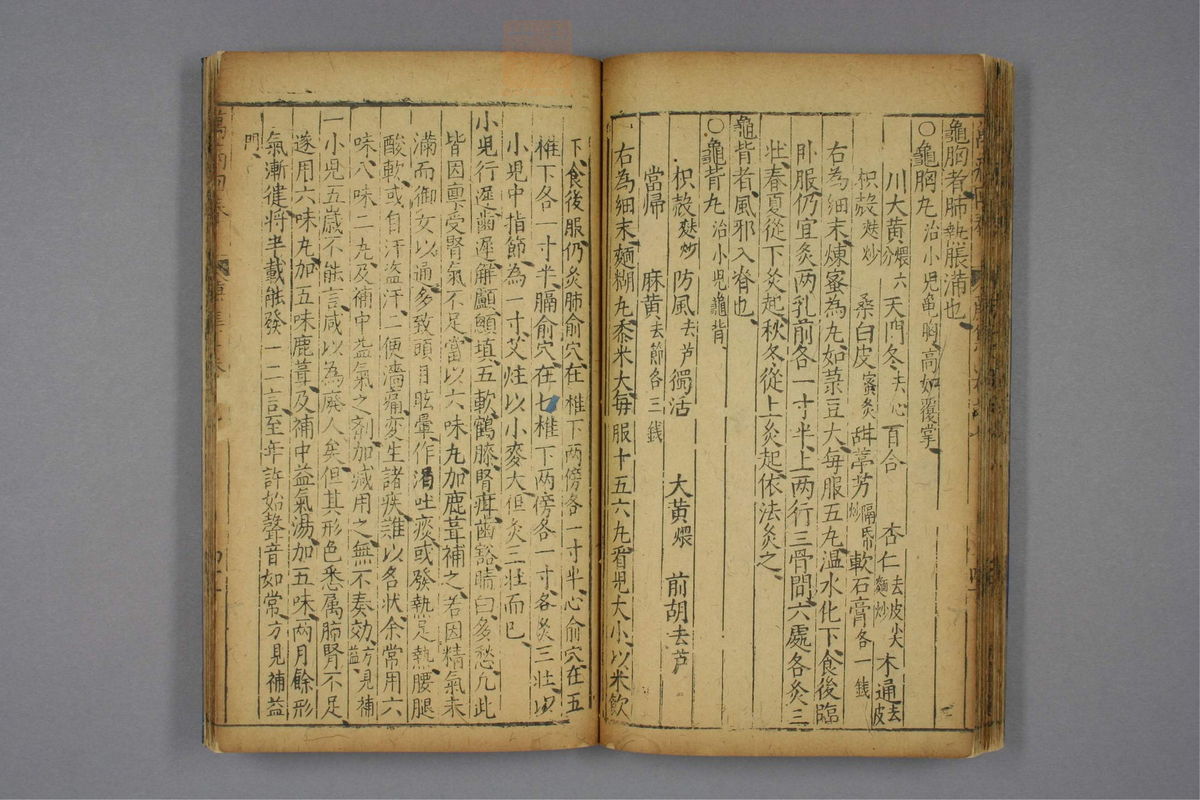 龜胸者、肺熱脹滿也、
○龜胸丸、治小児龜胸、高如覆掌、
川大黄煨六分 天門冬去心 百合 杏仁去皮尖麵炒 木通去皮
枳殼麩炒 桑白皮蜜炙 甜葶藶隔紙炒 軟石膏各一錢
右為細末、煉蜜為丸、如菉豆大、每服五丸、温水化下、食後臨
卧服、仍宜灸两乳前各一寸半、上两行三骨間、六處各灸三
壮、春夏從下灸起、秋冬從上灸起、依法灸之、
龜背者、風邪入脊也、
○龜背丸、治小児龜背、
枳殼麩炒 防風去芦 獨活 大黄煨 前胡去芦
當歸 麻黄去節各三錢
右為細末、麵糊丸、黍米大、每服十五六丸、看児大小、以米飲
下、食後服、仍灸肺俞穴、在 椎下两傍各一寸半、心俞穴、在五
椎下各一寸半、膈俞穴、在七椎下两傍各一寸半、各灸三壮、以
小児中指節、為一寸、艾炷以小麥大、但灸三壮而已、
小児行遲、齒遲、解顱、顖填、五軟、鶴膝、腎疳、齒豁、睛白、多愁、凢此
皆因禀受腎氣不足、當以六味丸、加鹿茸補之、若因精氣未
滿而御女以通、多致頭目眩暈、作渴吐痰、或發熱足熱、腰腿
酸軟、或自汗盗汗、二便濇痛、変生諸疾、難以名状、余常用六
味八味二丸、及補中益氣之剤、加减用之、無不奏効、方見補益
一小児五歳不能言、咸以為廢人矣、但其形色悉属肺腎不足、
遂用六味丸、加五味鹿茸、及補中益氣湯、加五味、两月餘、形
氣漸徤、將半載、能發一二言、至年許、始聲音如常、方見補益
門、